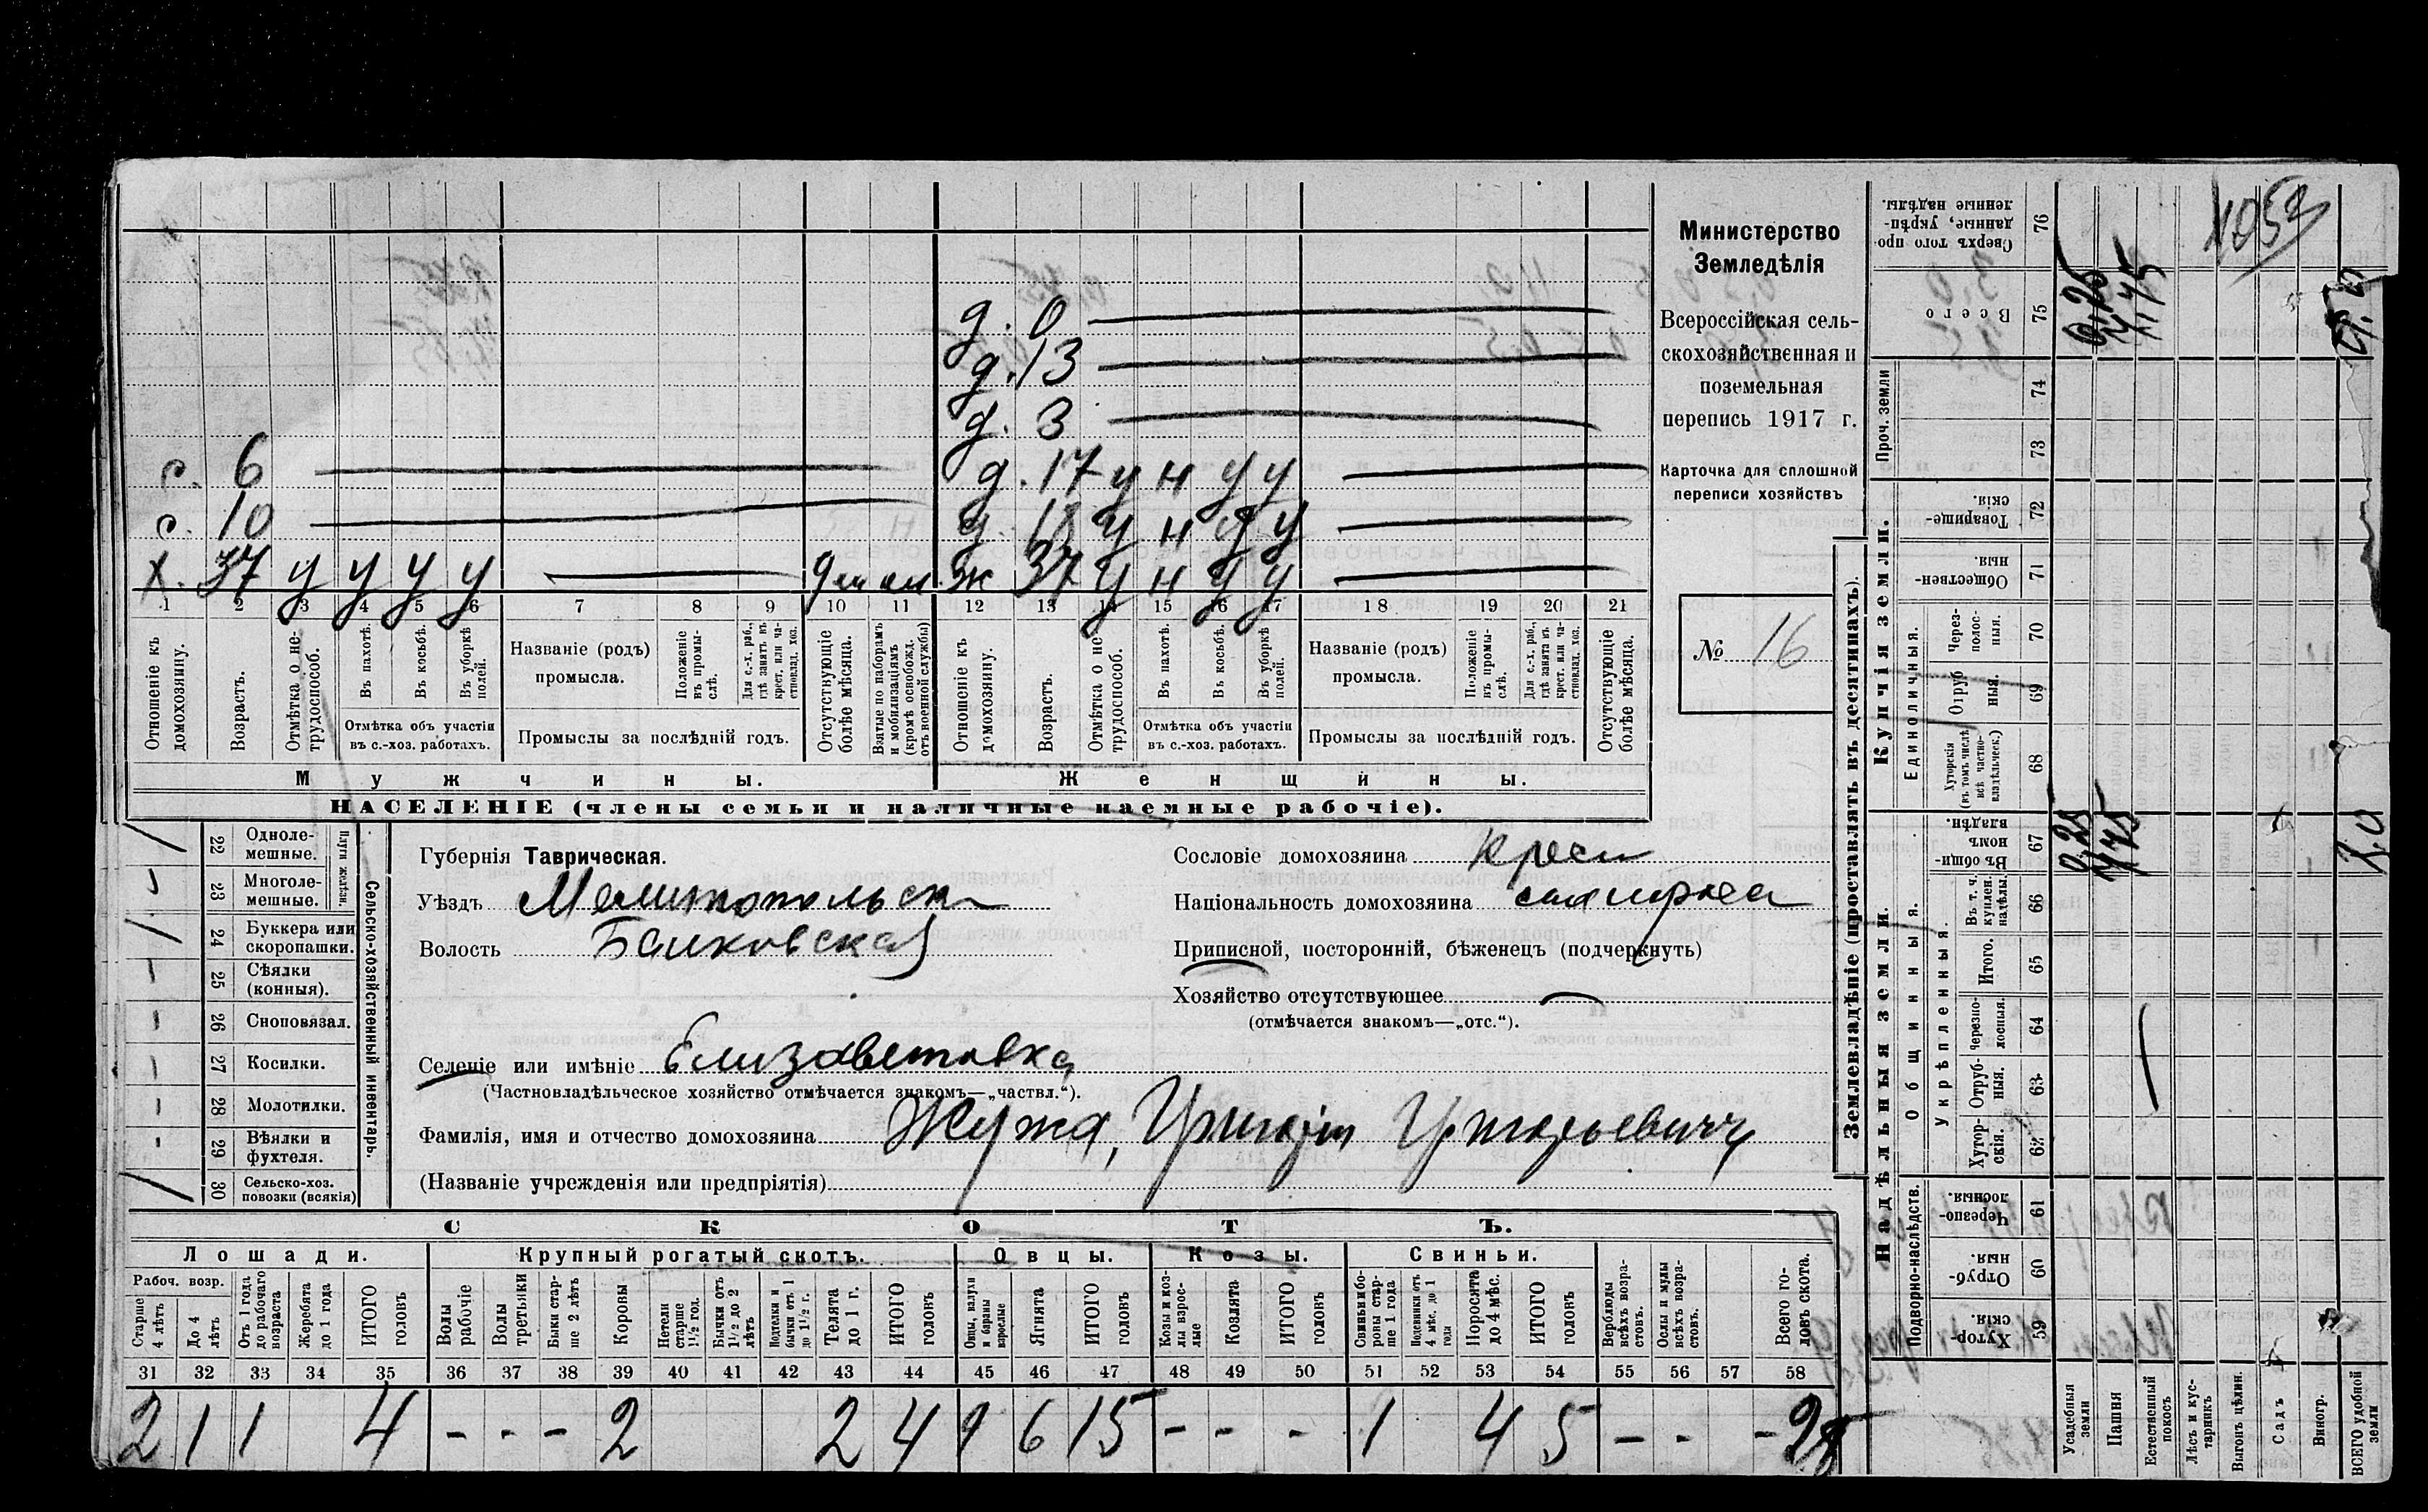 д. 0
д. 13
д. 3
с. 6 д. 17 у н у у
с. 10 д. 18 у н у у
х. 37 у у у у ж 37 у н у у
1 2 3 4 5 6 7 8 9 10 11 12 13 14 15 16 17 18 19 20 21
Отношеніе къ домохозяину.
Возрастъ.
Отмѣтка о не-
трудоспособ.
Въ пахотѣ.
Въ косьбѣ.
Въ уборкѣ
полей.
Отмѣтка объ участіи
въ с.-хоз. работахъ.
Названіе (родъ)
промысла.
Положеніе
въ промы-
слѣ.
Для с.-х. раб.,
гдѣ занятъ въ
крест. или ча-
стновлад. хоз.
Промыслы за послѣдній годъ.
Отсутствующіе
болѣе мѣсяца.
Взятые по наборамъ
и мобилизаціямъ
(кромѣ освобожд.
отъ военной службы)
Отношеніе къ
домохозяину.
Возрастъ.
Отмѣтка о не-
трудоспособ.
Въ пахотѣ.
Въ косьбѣ.
Въ уборкѣ
полей.
Отмѣтка объ участіи
въ с.-хоз. работахъ.
Названіе (родъ)
промысла.
Положеніе
въ промы-
слѣ.
Для с.-х. раб.,
гдѣ занята въ
крест. или ча-
стновлад. хоз.
Промыслы за послѣдній годъ.
Отсутствующіе
болѣе мѣсяца.
Мужчины. Женщины.
НАСЕЛЕНІЕ (члены семьи и наличные наемные рабочіе).
Министерство
Земледѣлія
Всероссійская сель-
скохозяйственная и
поземельная
перепись 1917 г.
Карточка для сплошной
переписи хозяйствъ
№ 16
22 Одноле-
мешные.
23 Многоле-
мешные.
Плуги желѣзн.
24 Буккера или
скоропашки.
25 Сѣялки
(конныя).
26 Сноповязал.
27 Косилки.
28 Молотилки.
29 Вѣялки и
фухтеля.
30 Сельско-хоз.
повозки (всякія)
Сельско-хозяйственный инвентарь.
Губернія Таврическая.
Уѣздъ Мелитопольск
Волость Балковская
Селеніе или имѣніе Елизаветовка
(Частновладѣльческое хозяйство отмѣчается знакомъ—„частвл.“).
Фамилія, имя и отчество домохозяина Жужа, Григорій Григорьевичъ
(Названіе учрежденія или предпріятія)
Сословіе домохозяина крест
Національность домохозяина
Приписной, посторонній, бѣженецъ (подчеркнуть)
Хозяйство отсутствующее
(отмѣчается знакомъ—„отс.“).
СКОТЪ.
Лошади. Крупный рогатый скотъ. Овцы. Козы. Свиньи.
Рабоч. возр.
Старше
4 лѣтъ
До 4
лѣтъ
Отъ 1 года
до рабочаго
возраста
Жеребята
до 1 года
ИТОГО
головъ
Волы
рабочіе
Волы
третьяки
Быки стар-
ше 2 лѣтъ
Коровы
Нетели
старше
1½ год.
Бычки отъ
1½ до 2
лѣтъ
Подтелки и
бычки отъ 1
до 1½ г.
Телята
до 1 г.
ИТОГО
головъ
Овцы, валухи
и бараны
взрослые
Ягнята
ИТОГО
головъ
Козы и коз-
лы взрос-
лые
Козлята
ИТОГО
головъ
Свиньи и бо-
ровы стар-
ше 1 года
Подсвинки отъ
4 мѣс. до 1
года
Поросята
до 4 мѣс.
ИТОГО
головъ
Верблюды
всѣхъ возра-
стовъ.
Ослы и мулы
всѣхъ возра-
стовъ.
Всего го-
ловъ скота.
31 32 33 34 35 36 37 38 39 40 41 42 43 44 45 46 47 48 49 50 51 52 53 54 55 56 57 58
2 1 1 4 - - - 2 2 4 9 6 15 - - - 1 4 5 - - - 28
Землевладѣніе (проставлять въ десятинахъ).
Сверхъ того про-
данные, укрѣп-
ленные надѣлы.
76
Всего
75
0,25
4,75
Проч. земли
74
73
Купчія земли.
Товарище-
скія.
72
Обществен-
ныя.
71
Единоличныя.
Через-
полос-
ныя.
70
Отруб
ныя.
69
Хуторскія
(въ томъ числѣ
всѣ частно-
владѣльческ.)
68
Надѣльныя земли.
Общинныя.
Въ общи-
номъ
владѣн.
67
0,25
4,75
Укрѣпленныя.
Въ т. ч.
куплен.
надѣлы.
66
Итого.
65
Черезпо-
лосныя.
64
Отруб-
ныя.
63
Хутор-
скія.
62
Подворно-наслѣдств.
Черезпо-
лосныя.
61
Отруб-
ныя.
60
Хутор-
скія.
59
Усадебныя
земли
Пашня
Естественный
покосъ
Лѣсъ и кус-
тарникъ
Выгонъ цѣлин.
Садъ
Виногр.
ВСЕГО удобной
земли